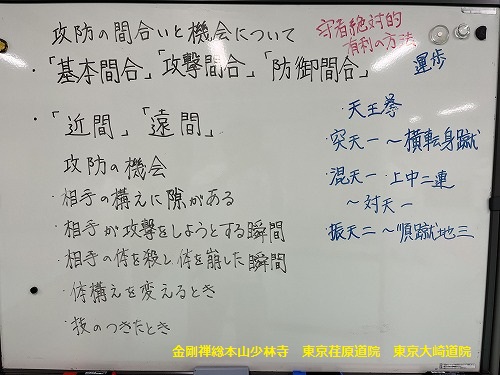 攻防の間合いと機会について
守者絶対的
有利の方法
・「基本間合」「攻撃間合」「防御間合」
運歩
・「近間」「遠間」
攻防の機会
・相手の構えに隙がある
・相手が攻撃をしようとする瞬間
・相手の体を殺し、体を崩した瞬間
・体構えを変えるとき
・技のつきたとき
・天王拳
・突天一~横転身蹴
・混天一 上中二連
~対天一
・振天二~順蹴地三
金剛禅総本山少林寺 東京荏原道院 東京大崎道院